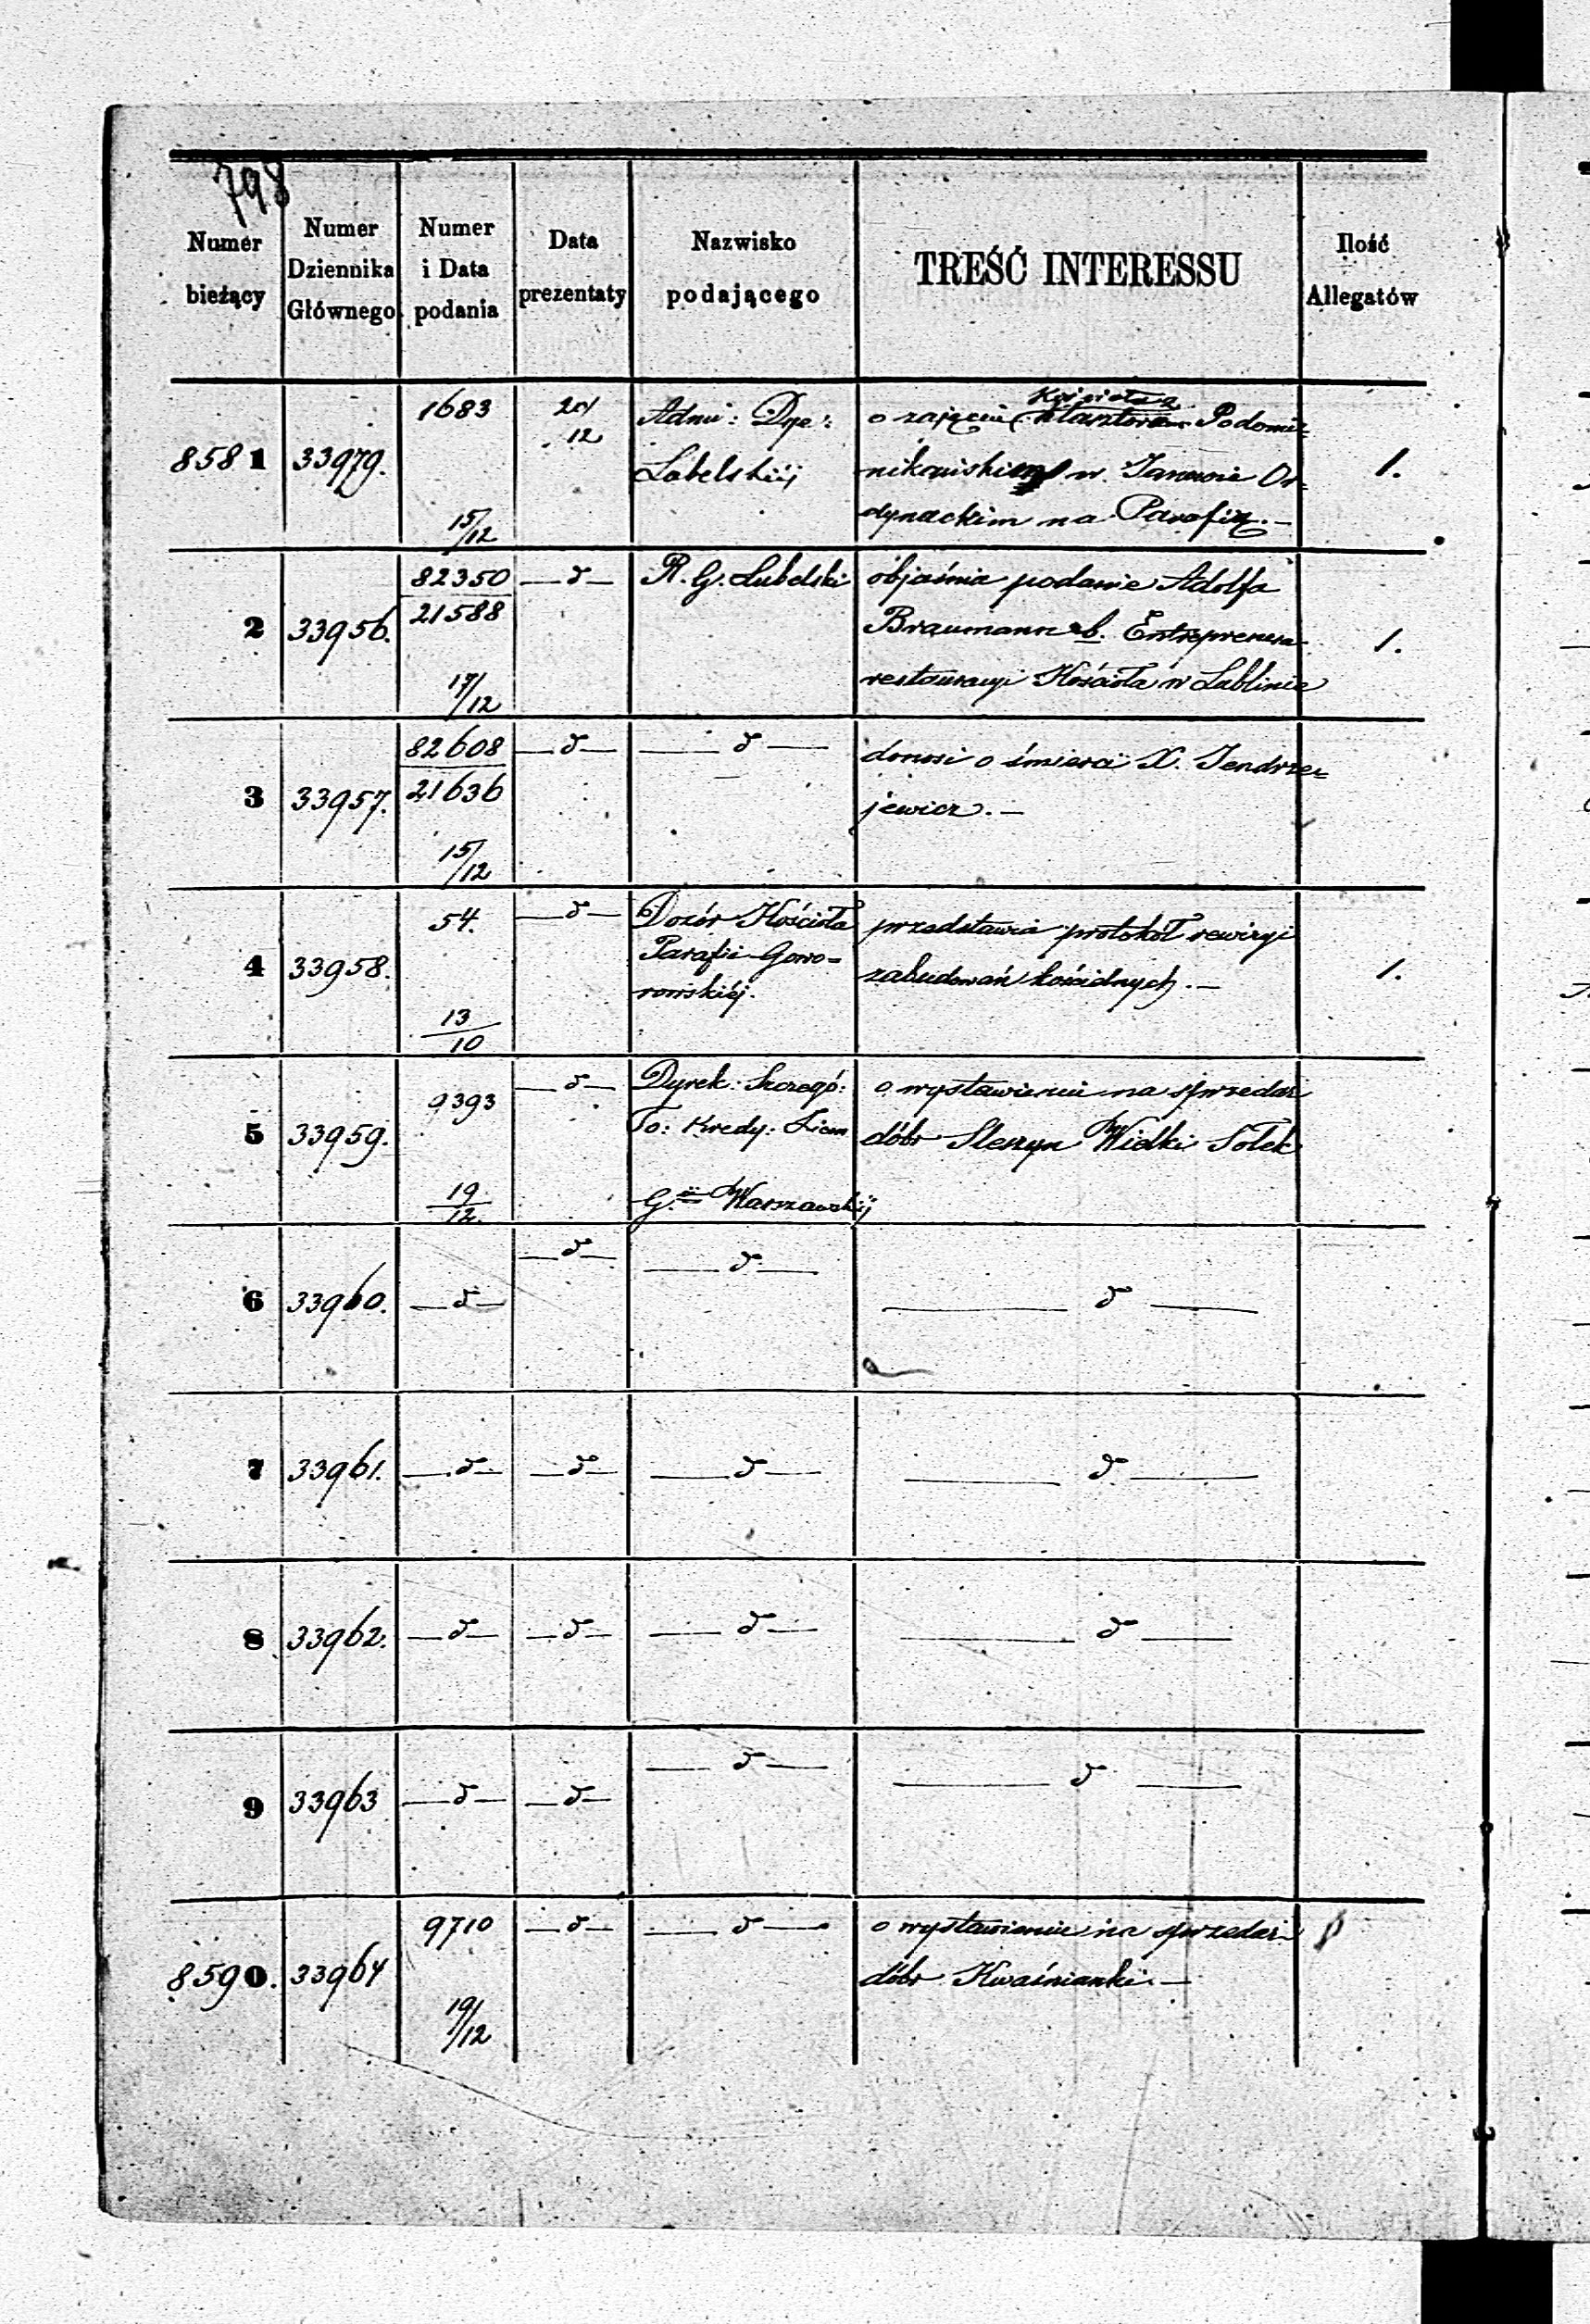 798
Numer bieżący
Numer Dziennika Głównego
Numer i Data podania
Data prezentaty
Nazwisko podającego
TREŚĆ INTERESSU
Ilość Allegatów
8581 33979. 1683 15/12 24/12
Admi: Dye:
Lubelskiéj
Kościoła
o zajęciu Klasztoru Podomi=
nikańskim w Janowie Or=
dynackim na Parafią. —
1.
2 33956. 82350 21588 17/12 — d —
R. G. Lubelski
objaśnia podanie Adolfa
Braumann b. Entreprenera
restauracyi Kościoła w Lublinie
1.
3 33957. 82608 21636 15/12 — d — — d —
donosi o śmierci X. Jendrze=
jewicz. —
4 33958. 54. 13/10 — d —
Dozór Kościoła
Parafii Gowo=
rowskiéj.
przedstawia protokół rewizyi
zabudowań kościelnych. —
1.
5 33959. 9393 19/12 — d —
Dyrek: Szczegó:
To: Kredy: Ziem
G.ii Warszawskiéj
o wystawieniu na sprzedaż
dóbr Sleszyn Wielki Sołek
6 33960. — d — — d — — d — — d —
7 33961. — d — — d — — d — — d —
8 33962. — d — — d — — d — — d —
9 33963 — d — — d — — d — — d —
8590. 33964 9710 19/12 — d — — d —
o wystawieniu na sprzedaż
dóbr Kwaśnianki. —